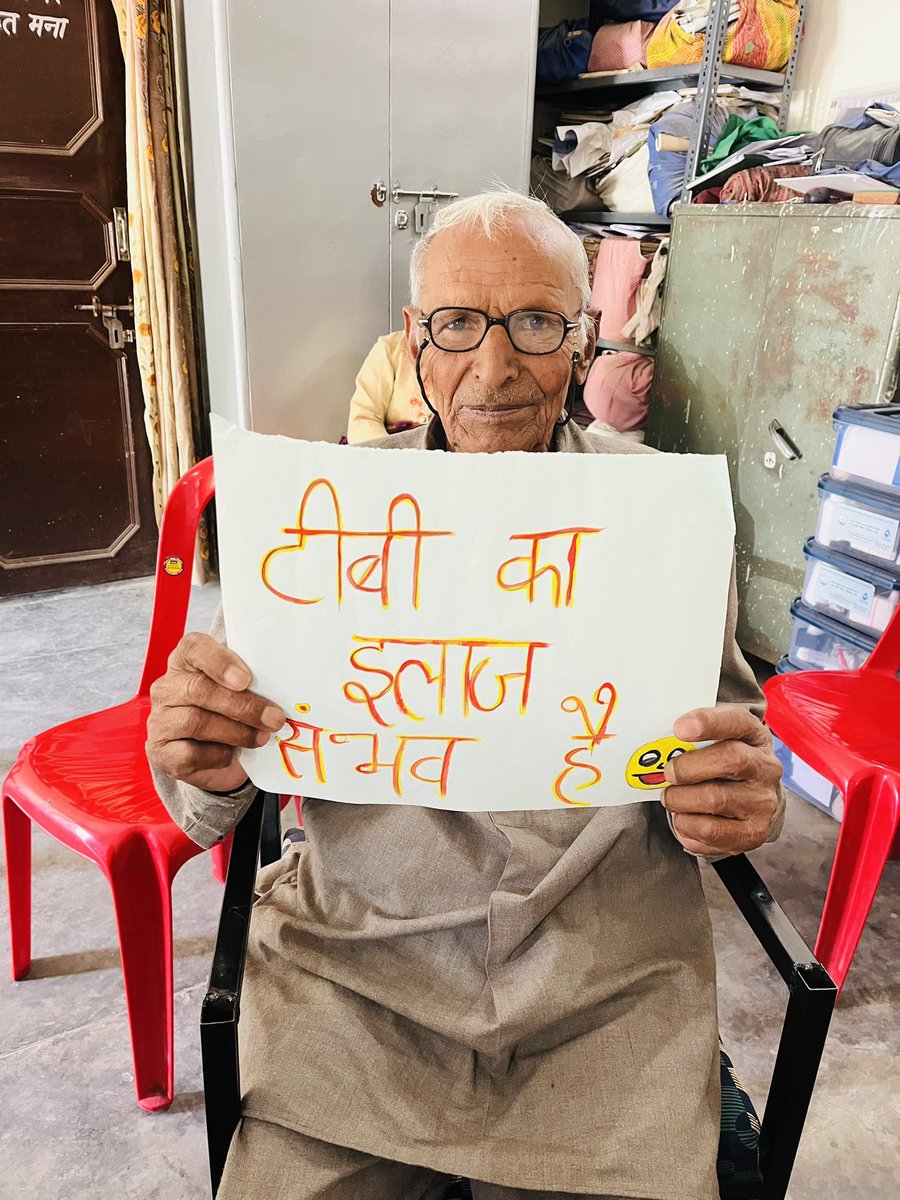 त मना
टीबी का
इलाज
संभव है